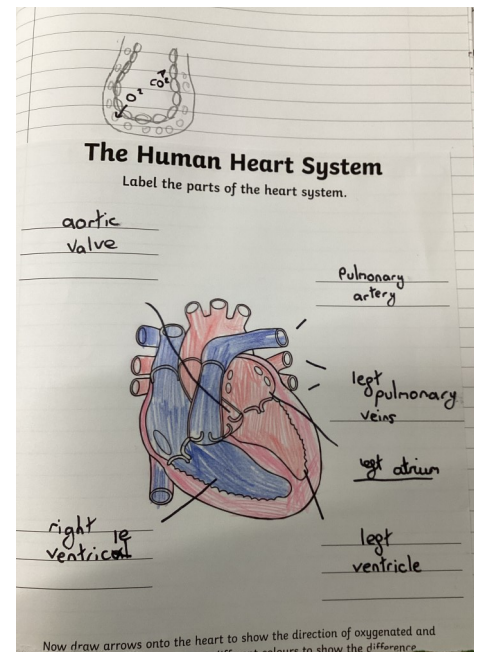 O2
CO2
The Human Heart System
Label the parts of the heart system.
aortic
valve
Pulmonary
artery
legt
pulmonary
veins
legt atrium
right
ventricle
legt
ventricle
Now draw arrows onto the heart to show the direction of oxygenated and
colours to show the difference